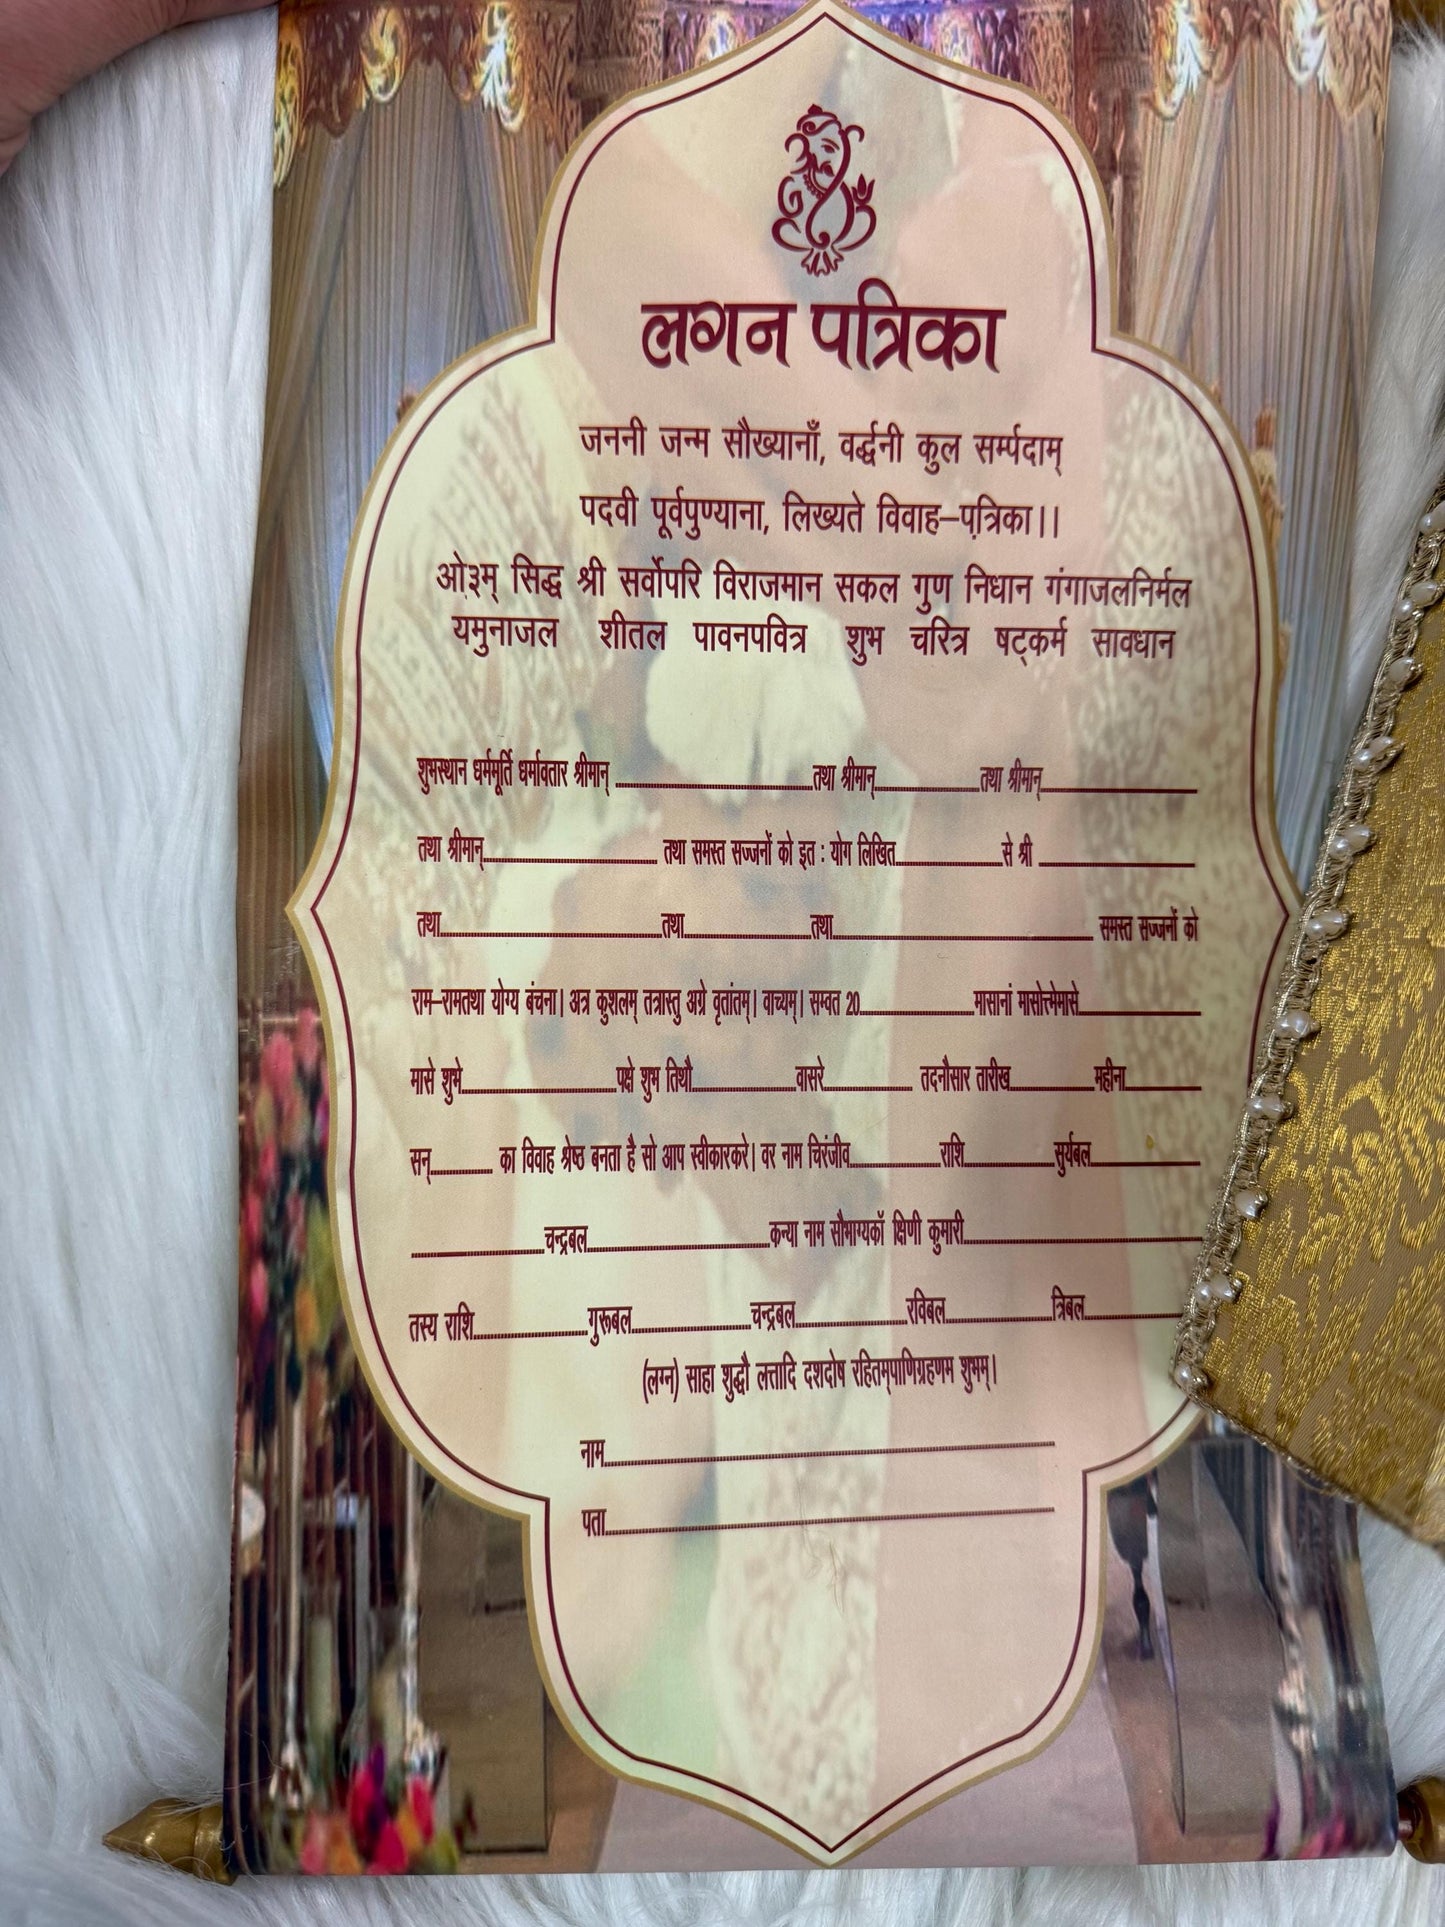 लगन पत्रिका
जननी जन्म सौख्यानाँ, वर्द्धनी कुल सर्म्पदाम्
पदवी पूर्वपुण्याना, लिख्यते विवाह–पत्रिका।।
ओ३म् सिद्ध श्री सर्वोपरि विराजमान सकल गुण निधान गंगाजलनिर्मल
यमुनाजल शीतल पावनपवित्र शुभ चरित्र षट्कर्म सावधान
शुभस्थान धर्ममूर्ति धर्मावतार श्रीमान् ____________ तथा श्रीमान् ____________ तथा श्रीमान् ____________
तथा श्रीमान् ____________ तथा समस्त सज्जनों को इत : योग लिखित ____________ से श्री ____________
तथा ____________ तथा ____________ तथा ____________ समस्त सज्जनों को
राम–रामतथा योग्य बंचना। अत्र कुशलम् तत्रास्तु अग्रे वृतांतम्। वाच्यम्। सम्वत 20 ____________ मासानां मासोत्त्मेमासे ____________
मासे शुभे ____________ पक्षे शुभ तिथौ ____________ वासरे ____________ तदनौसार तारीख ____________ महीना ____________
सन् ____________ का विवाह श्रेष्ठ बनता है सो आप स्वीकारकरे। वर नाम चिरंजीव ____________ राशि ____________ सुर्यबल ____________
____________ चन्द्रबल ____________ कन्या नाम सौभाग्यकॉ क्षिणी कुमारी ____________
तस्य राशि ____________ गुरूबल ____________ चन्द्रबल ____________ रविबल ____________ त्रिबल ____________
(लग्न) साहा शुद्धौ लत्तादि दशदोष रहितम्पाणिग्रहणम शुभम्।
नाम ____________
पता ____________